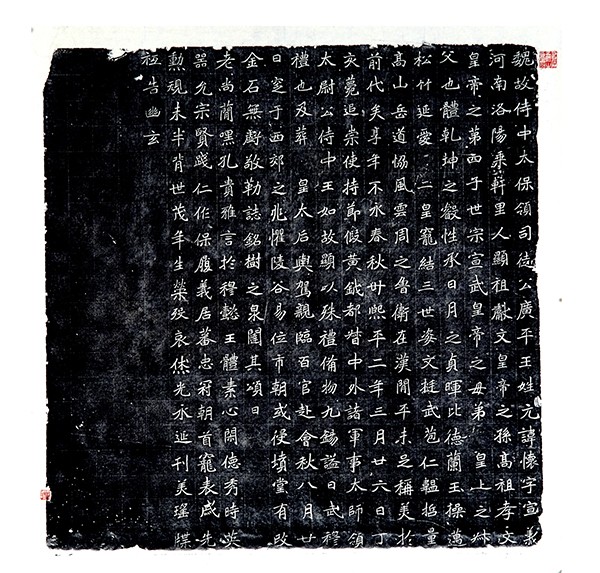 魏故侍中太保領司徒公廣平王姓元諱懷字宣義
河南洛陽乘軒里人顯祖獻文皇帝之孫高祖孝文
皇帝之第四子世宗宣武皇帝之母弟 皇上之叔
父也體乾坤之叡性承日月之貞暉比德蘭玉操邁
松竹延愛二皇寵結三世姿文挺武苞仁韞哲量
高山岳道協風雲周之魯衛在漢間平未足稱美於
前代矣享年不永春秋卅熙平二年三月廿六日丁
亥薨追崇使持節假黃鉞都督中外諸軍事太師領
太尉公侍中王如故顯以殊禮備物九錫謚曰武穆
禮也及葬 皇太后輿駕親臨百官赴會秋八月廿
日窆于西郊之兆懼陵谷易位市朝或侵墳堂有改
金石無虧敬勒誌銘樹之泉闥其頌曰
老尚簡嘿孔貴雅言於穆懿王體素心閑德秀時英
器允宗賢踐仁作保履義居蕃忠冠朝首寵表戚先
勳視未半背世茂年生榮歿哀休光永延刊美瑤牒
祉告幽玄